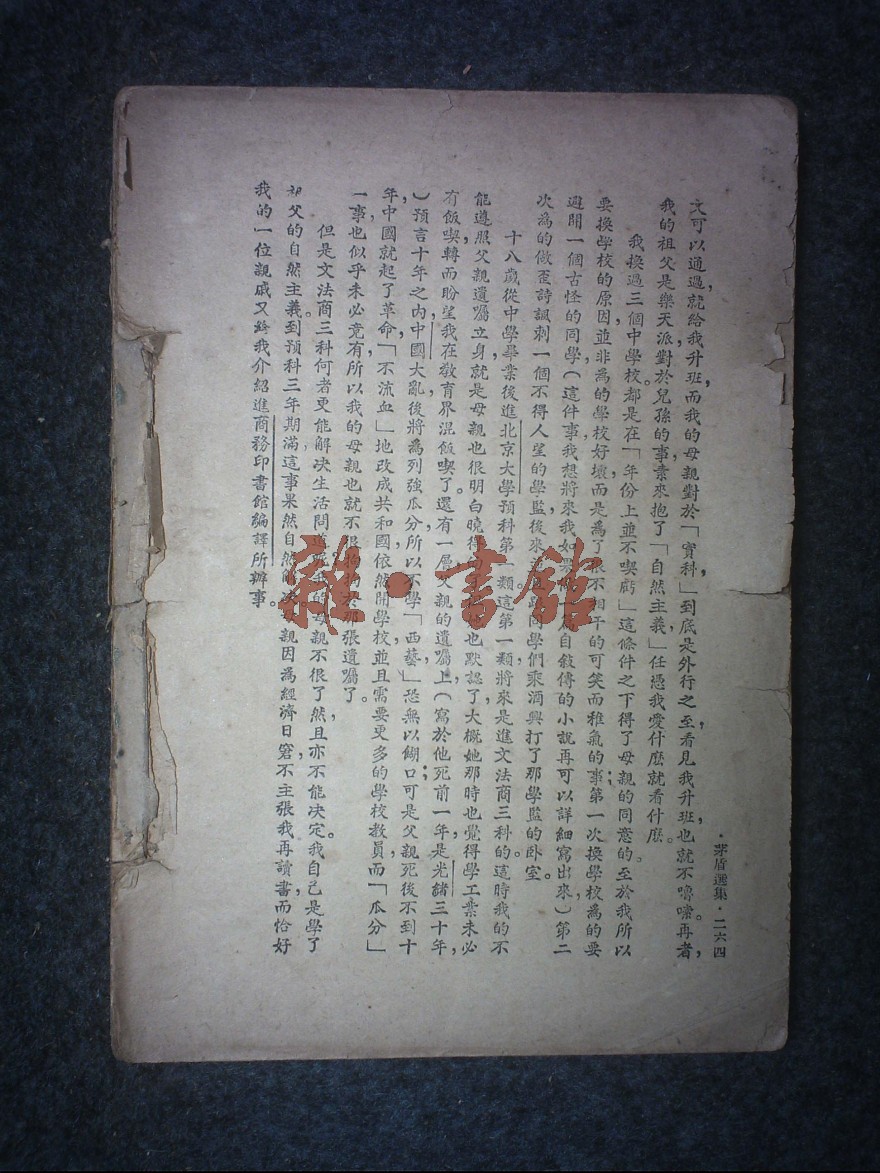 ·茅盾選集·二六四
文可以通過，就給我升班，而我的母親對於「實科」，到底是外行之至，看見我升班，也就不嚕囌。再者，
我的祖父是樂天派，對於兒孫的事素來抱了「自然主義」，任憑我愛什麽就看什麽。
我換過三個中學校。都是在「年份上並不喫虧」這條件之下得了母親的同意的。至於我所以
要換學校的原因，並非爲的學校好壞，而是爲了很不相干的可笑而稚氣的事；第一次換學校爲的要
避開一個古怪的同學（這件事我想將來我如果自敘傳的小說，再可以詳細寫出來），第二
次爲的做歪詩諷刺一個不得人望的學監，後來同學們乘酒興打了那學監的卧室。
十八歲從中學畢業後，進北京大學預科第一類。這第一類將來是進文法商三科的。這時我的不
能遵照父親遺囑立身，就是母親也很明白曉得也默認了。大概她那時也覺得學工業未必
有飯喫，轉而盼望我在教育界混飯喫了。還有一層，父親的遺囑上（寫於他死前一年，是光緒三十年，
）預言十年之內，中國大亂，後將爲列強瓜分，所以不學「西藝」，恐無以餬口；可是父親死後不到十
年，中國就起了革命，「不流血」地改成共和國，依然開學校，並且需要更多的學校教員，而「瓜分」
一事，也似乎未必竟有，所以我的母親也就不很那張遺囑了。
但是文法商三科何者更能解决生活問題呢？我的母親不很了然，且亦不能决定。我自己是學了
祖父的自然主義。到預科三年期滿，這事果然自然親因爲經濟日窘，不主張我再讀書，而恰好
我的一位親戚又給我介紹進商務印書館編譯所辦事。
雜·書館